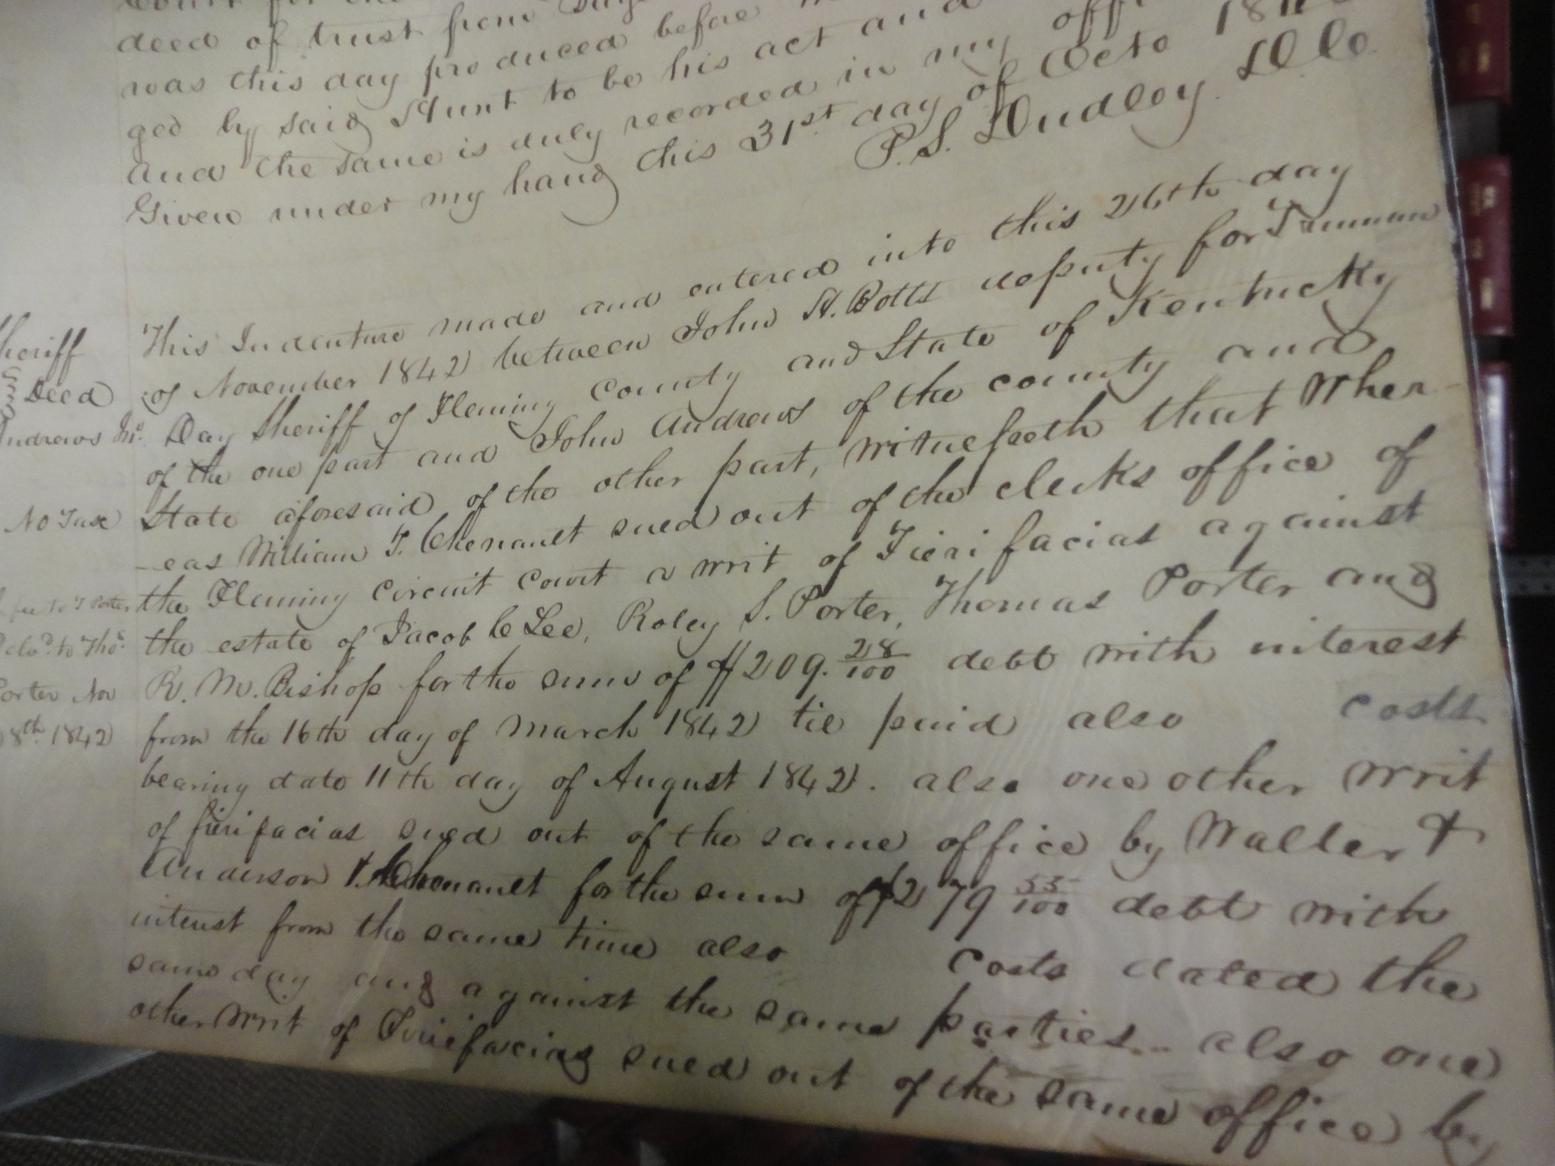 deed of trust from
was this day produced before
ged by said Hunt to be his act and
and the same is duly recorded in my office
Given under my hand this 31st day of Octo 184
P. S. Dudley D Clk
This Indenture made and entered into this 26th day
of November 1842 between John H. Botts deputy for Trumman
Day Sheriff of Fleming County and State of Kentucky
of the one part and John Andrews of the county and
State aforesaid of the other part, witnesseth that Wher-
-eas William T. Chenault sued out of the clerks office of
the Fleming Circuit Court a writ of Fieri facias against
the estate of Jacob C Lee, Roley S. Porter, Thomas Porter and
R. M. Bishop for the sum of $209. 28/100 debt with interest
from the 16th day of March 1842 til paid also costs
bearing date 11th day of August 1842. also one other writ
of fieri facias sued out of the same office by Waller &
Anderson Chenault for the sum of $279 55/100 debt with
interest from the same time also costs dated the
same day and against the same parties - also one
other writ of Fieri facias sued out of the same office by
Sheriff
Deed
Andrews Jno.
No Tax
fee to T Porter
to Thos.
Porter Nov
8th 1842